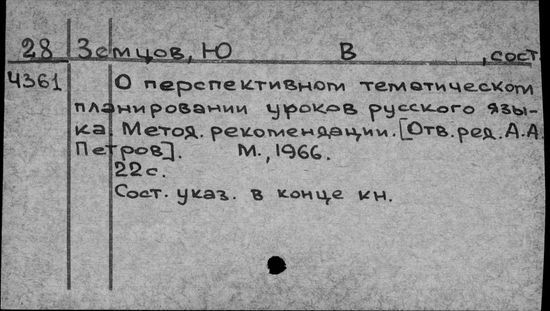 28 Земцов, Ю В , сост
4361 О перспективном тематическом
планировании уроков русского язы-
ка. Метод. рекомендации. [Отв. ред. А.А.
Петров]. М., 1966.
22 с.
Сост. указ. в конце кн.